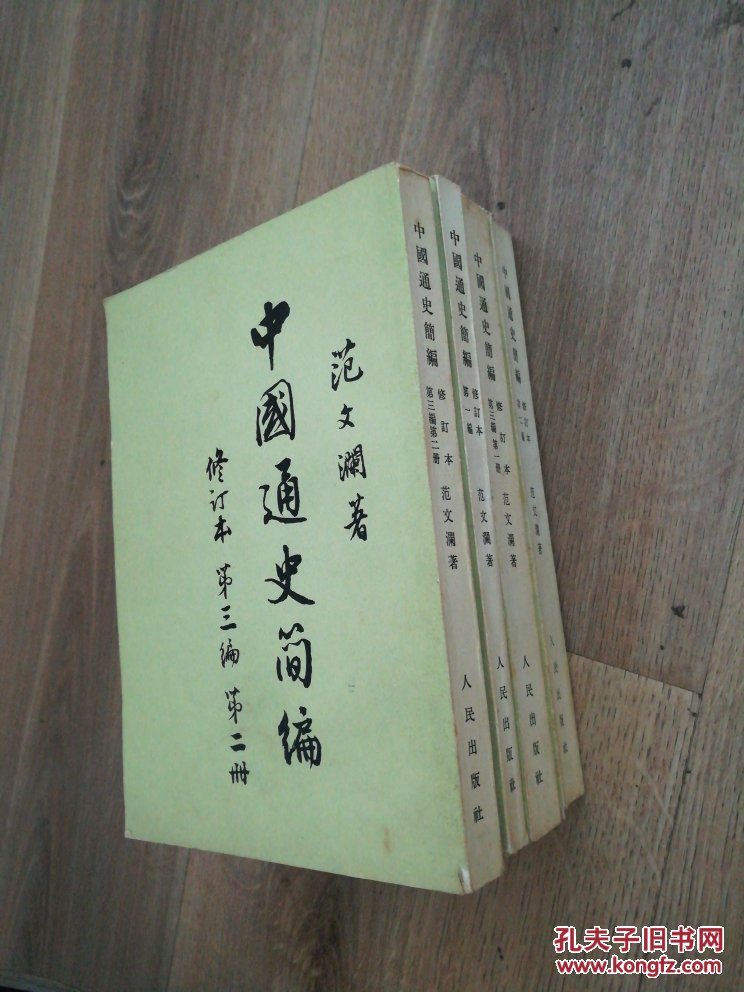 范文瀾著
中國通史简编
修订本 第三编 第二册
中國通史簡編 修訂本 第三編第二册 范文瀾著 人民出版社
中國通史簡編 修訂本 第一編 范文瀾著 人民出版社
中國通史簡編 修訂本 第三編第一册 范文瀾著 人民出版社
中國通史簡編 修訂本 第二編 范文瀾著 人民出版社
孔夫子旧书网
www.kongfz.com